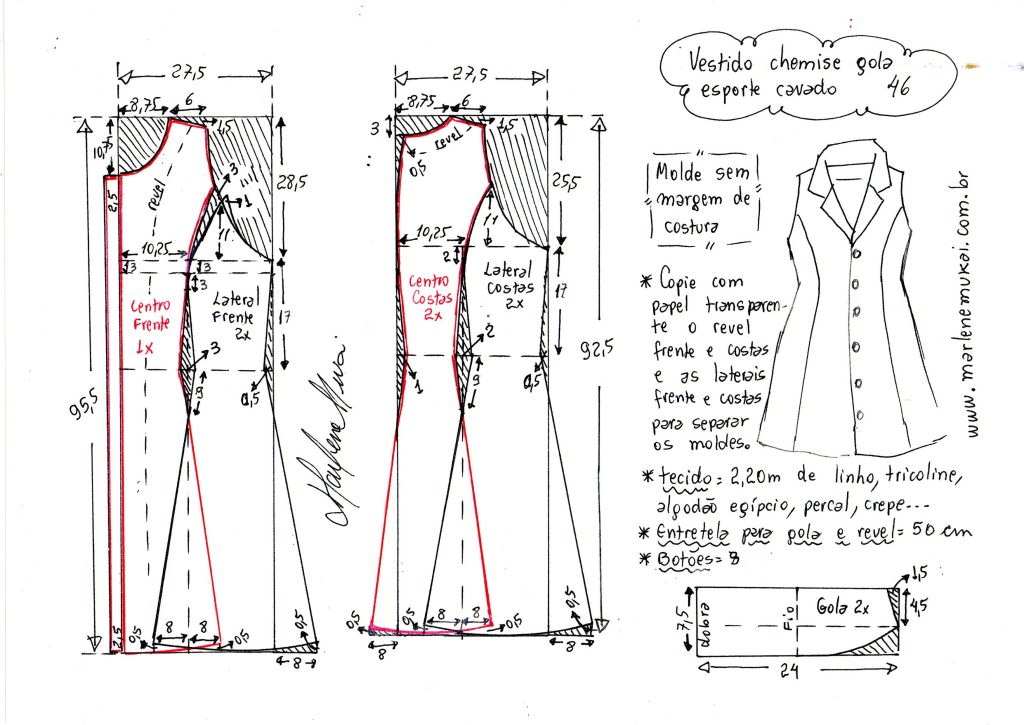 Vestido chemise gola
esporte cavado 46
Molde sem
margem de
costura
* Copie com
papel transparen-
te o revel
frente e costas
e as laterais
frente e costas
para separar
os moldes.
* tecido = 2,20m de linho, tricoline,
algodão egípcio, percal, crepe---
* Entretela para gola e revel = 50 cm
* Botões = 8
www.marlenemukai.com.br
27,5
8,75
6
1,5
10,75
2,5
revel
3
1
11
28,5
10,25
3
3
3
Centro
Frente
1x
Lateral
Frente
2x
17
3
9
0,5
95,5
2,5
0,5
8
8
0,5
0,5
8
Marlene Mukai
27,5
8,75
6
1,5
3
0,5
revel
11
25,5
10,25
2
Centro
Costas
2x
Lateral
Costas
2x
17
2
1
9
0,5
92,5
0,5
8
8
0,5
0,5
8
8
1,5
4,5
7,5
dobra
Fio
Gola 2x
24